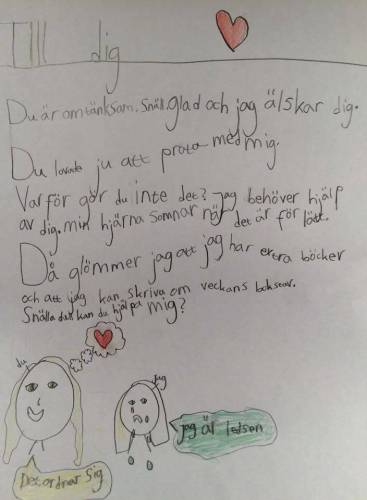 Till dig
Du är omtänksam. Snäll. glad och jag älskar dig.
Du lovade ju att prata med mig.
Varför gör du inte det? jag behöver hjälp
av dig. min hjärna somnar när det är för lätt.
Då glömmer jag att jag har extra böcker
och att jag kan skriva om veckans bokstav.
Snälla du kan du hjälpa mig?
du
jag
Det ordnar sig
jag är ledsen